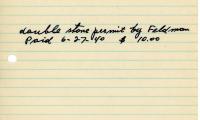 double stone permit by Feldman
Paid 6-27-40 $ 10.00